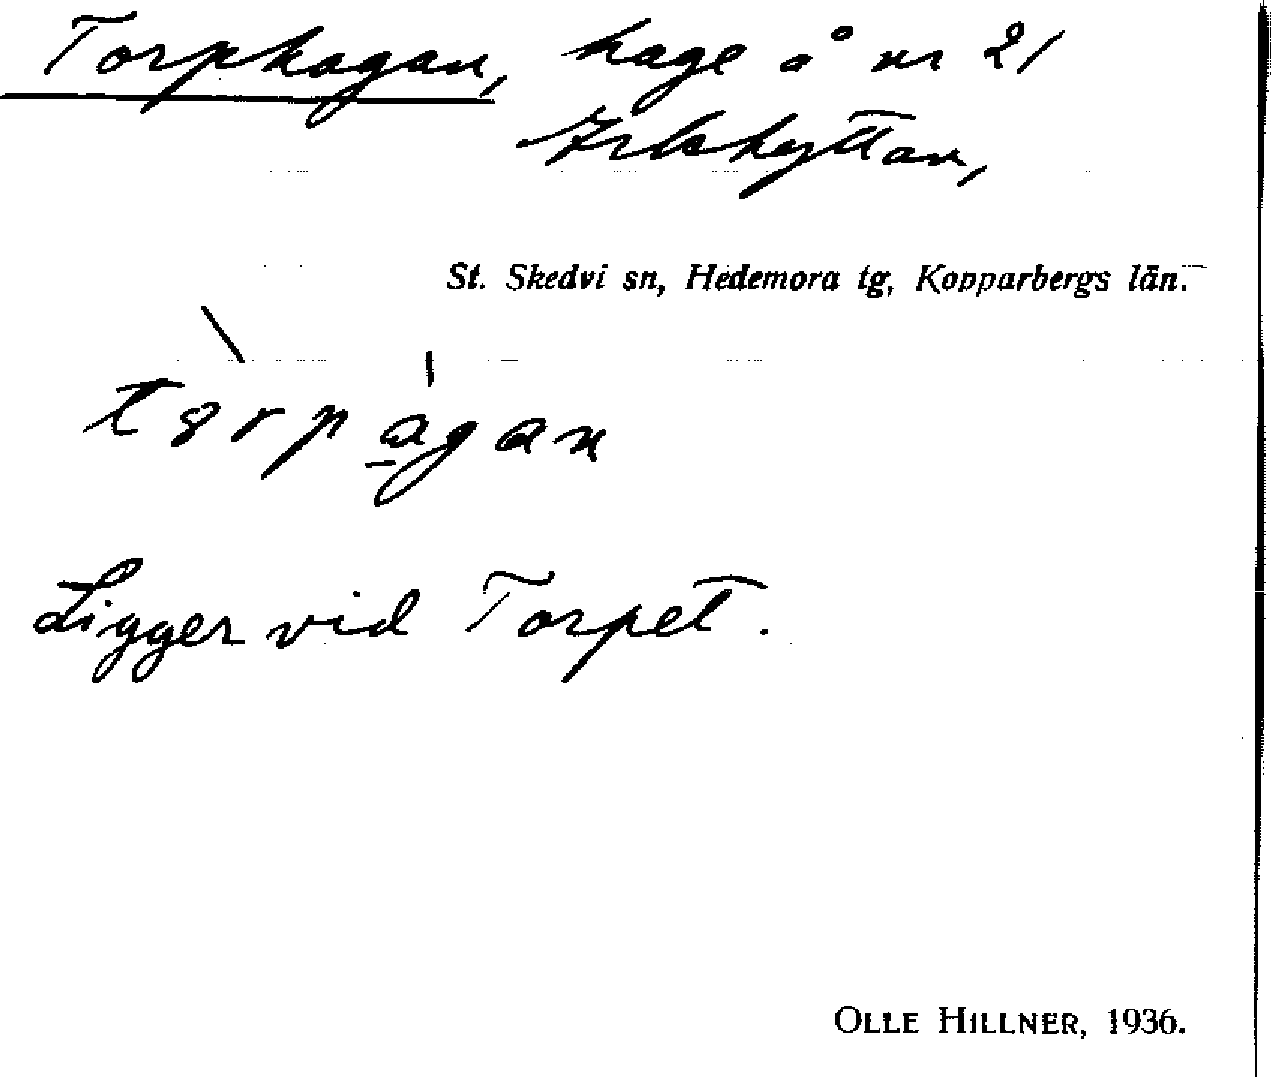 Torphagan, hage å nr 21
Arkhyttan,
St. Skedvi sn, Hedemora tg, Kopparbergs län.
Ligger vid Torpet.
OLLE HILLNER, 1936.